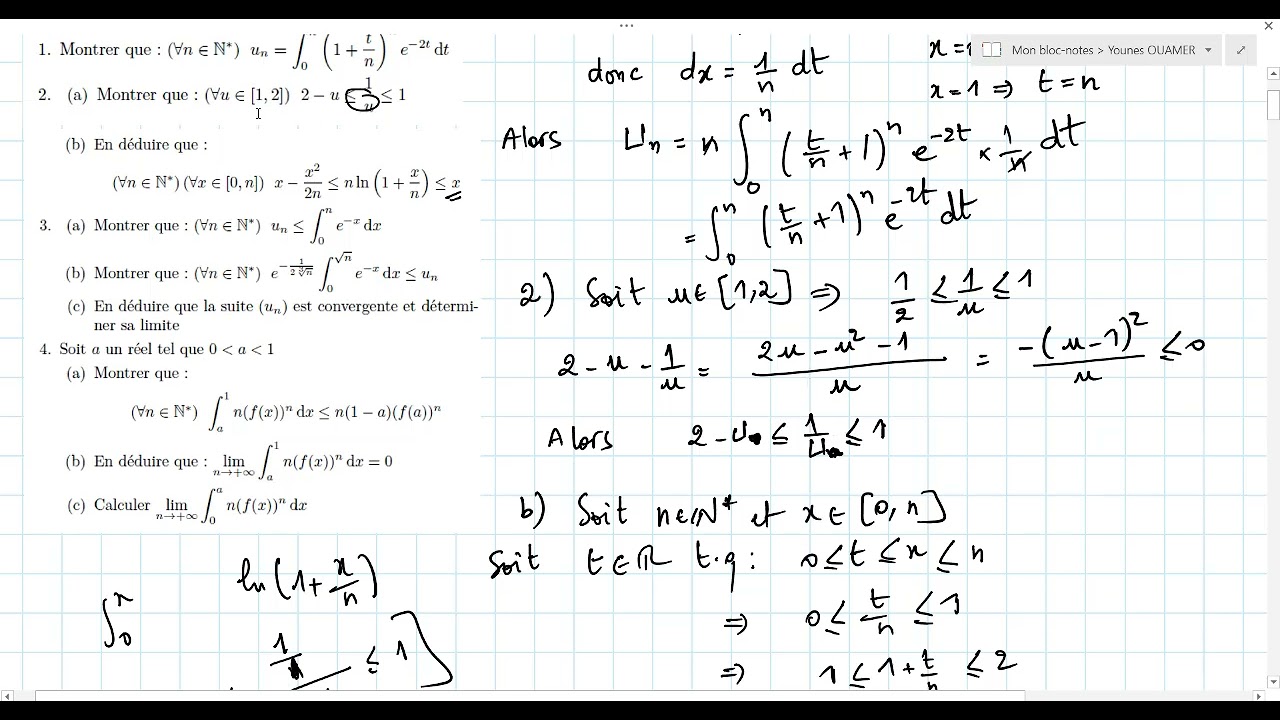 1. Montrer que : (∀n ∈ ℕ*) uₙ = ∫₀ⁿ (1 + t/n)ⁿ e⁻²ᵗ dt
2. (a) Montrer que : (∀u ∈ [1, 2]) 2 − u ≤ 1/u ≤ 1
(b) En déduire que :
(∀n ∈ ℕ*) (∀x ∈ [0, n]) x − x²/2n ≤ n ln(1 + x/n) ≤ x
3. (a) Montrer que : (∀n ∈ ℕ*) uₙ ≤ ∫₀ⁿ e⁻ˣ dx
(b) Montrer que : (∀n ∈ ℕ*) e^(−1/(2∛n)) ∫₀^√n e⁻ˣ dx ≤ uₙ
(c) En déduire que la suite (uₙ) est convergente et détermi-
ner sa limite
4. Soit a un réel tel que 0 < a < 1
(a) Montrer que :
(∀n ∈ ℕ*) ∫ₐ¹ n(f(x))ⁿ dx ≤ n(1 − a)(f(a))ⁿ
(b) En déduire que : lim n→+∞ ∫ₐ¹ n(f(x))ⁿ dx = 0
(c) Calculer lim n→+∞ ∫₀ᵃ n(f(x))ⁿ dx
ln(1 + x/n)
∫₀ˣ
≤ 1
Mon bloc-notes > Younes OUAMER
donc dx = 1/n dt
x = 1 ⇒ t = n
Alors Uₙ = n ∫₀ⁿ (t/n + 1)ⁿ e⁻²ᵗ × 1/n dt
= ∫₀ⁿ (t/n + 1)ⁿ e⁻²ᵗ dt
2) Soit u ∈ [1,2] ⇒ 1/2 ≤ 1/u ≤ 1
2 − u − 1/u = (2u − u² − 1)/u = −(u − 1)²/u ≤ 0
Alors 2 − u ≤ 1/u ≤ 1
b) Soit n ∈ ℕ* et x ∈ [0, n]
Soit t ∈ ℝ t.q : 0 ≤ t ≤ x ≤ n
⇒ 0 ≤ t/n ≤ 1
⇒ 1 ≤ 1 + t/n ≤ 2